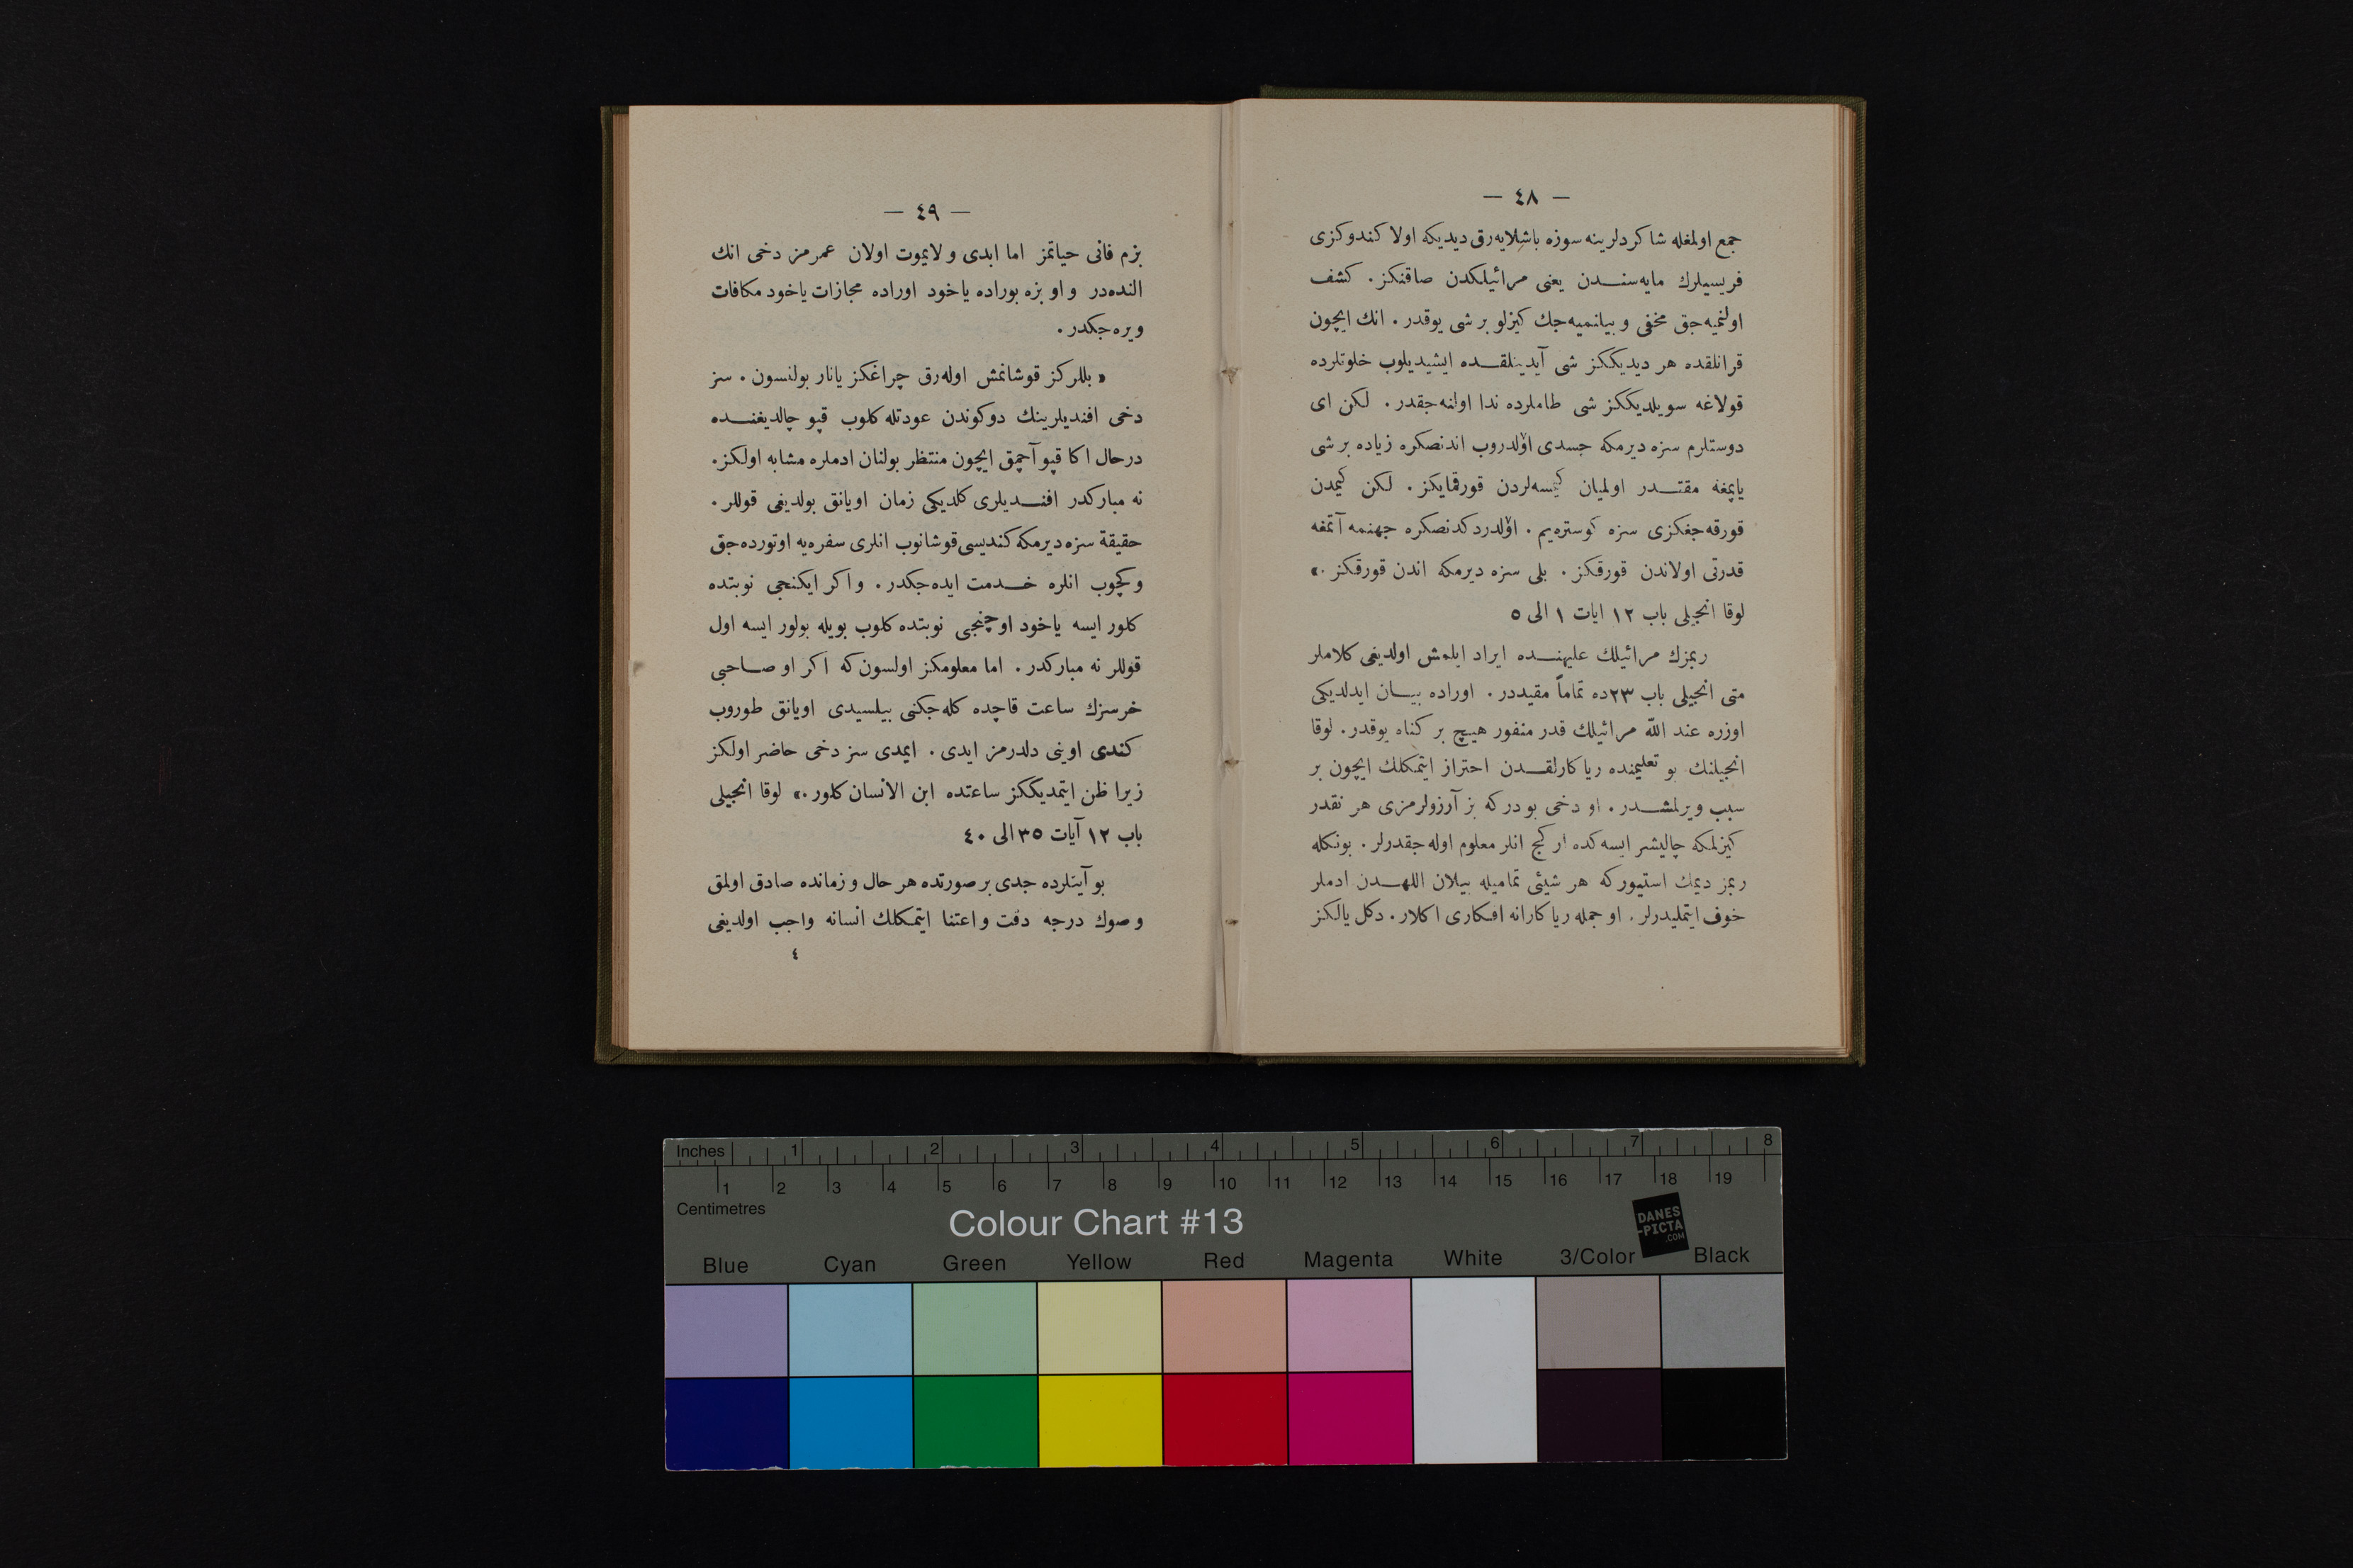 — ٤٨ —
جمع اولمغله شاكردلرينه سوزه باشلايه‌رق ديديكه اولا كندوكزى
فريسيلرك مايه‌سندن يعنى مرائيلكدن صاقنكز . كشف
اولنميه‌جق مخفى و بيلنميه‌جك كيزلو بر شى يوقدر . انك ايچون
قرانلقده هر ديديككز شى آيدينلقده ايشيديلوب خلوتلرده
قولاغه سويلديككز شى طاملرده ندا اولنه‌جقدر . لكن اى
دوستلرم سزه ديرمكه جسدى اولدروب اندنصكره زياده بر شى
ياپمغه مقتدر اولميان كيمسه‌لردن قورقمايكز . لكن كيمدن
قورقه‌جغكزى سزه كوستره‌يم . اولدردكدنصكره جهنمه آتمغه
قدرتى اولاندن قورقكز . بلى سزه ديرمكه اندن قورقكز .»
لوقا انجيلى باب ١٢ ايات ١ الى ٥
ربمزك مرائيلك عليهنده ايراد ايلمش اولديغى كلاملر
متى انجيلى باب ٢٣ده تماماً مقيددر . اوراده بيان ايدلديكى
اوزره عند الله مرائيلك قدر منفور هيچ بر كناه يوقدر . لوقا
انجيلنك بو تعليمنده رياكارلقدن احتراز ايتمكلك ايچون بر
سبب ويرلمشدر . او دخى بودركه بز آرزولرمزى هر نقدر
كيزلمكه چاليشر ايسه‌كده ار كچ انلر معلوم اوله‌جقدرلر . بونكله
ربمز ديمك استيوركه هر شيئى تماميله بيلان اللهدن ادملر
خوف ايتمليدرلر . او جمله رياكارانه افكارى اكلار . دكل يالكز
— ٤٩ —
بزم فانى حياتمز اما ابدى و لايموت اولان عمرمز دخى انك
النده‌در و او بزه بوراده ياخود اوراده مجازات ياخود مكافات
ويره‌جكدر .
« بللركز قوشانمش اوله‌رق چراغكز يانار بولنسون . سز
دخى افنديلرينك دوكوندن عودتله كلوب قپو چالديغنده
درحال اكا قپو آچمق ايچون منتظر بولنان ادملره مشابه اولكز .
نه مباركدر افنديلرى كلديكى زمان اويانق بولديغى قوللر .
حقيقة سزه ديرمكه كنديسى قوشانوب انلرى سفره‌يه اوتورده‌جق
و كچوب انلره خدمت ايده‌جكدر . و اكر ايكنجى نوبتده
كلور ايسه ياخود اوچنجى نوبتده كلوب بويله بولور ايسه اول
قوللر نه مباركدر . اما معلومكز اولسون كه اكر او صاحبى
خرسزك ساعت قاچده كله‌جكنى بيلسيدى اويانق طوروب
كندى اوينى دلدرمز ايدى . ايمدى سز دخى حاضر اولكز
زيرا ظن ايتمديككز ساعتده ابن الانسان كلور .» لوقا انجيلى
باب ١٢ آيات ٣٥ الى ٤٠
بو آيتلرده جدى بر صورتده هر حال و زمانده صادق اولمق
و صوك درجه دقت و اعتنا ايتمكلك انسانه واجب اولديغى
٤
Inches 1 2 3 4 5 6 7 8
1 2 3 4 5 6 7 8 9 10 11 12 13 14 15 16 17 18 19
Centimetres
Colour Chart #13
DANES
-PICTA
.COM
Blue Cyan Green Yellow Red Magenta White 3/Color Black